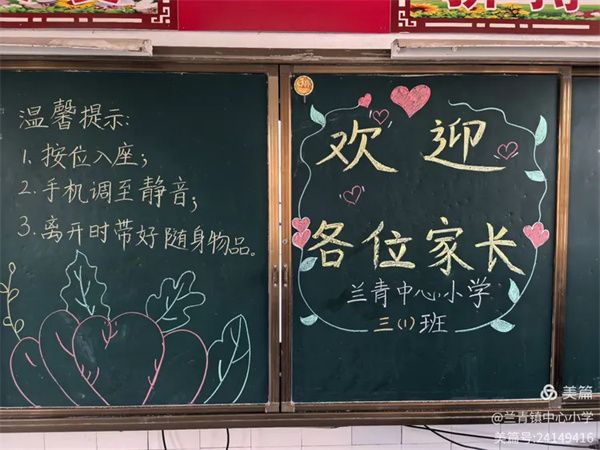 温馨提示:
1. 按位入座;
2. 手机调至静音;
3. 离开时带好随身物品。
欢迎
各位家长
兰青中心小学
三(1)班
美篇
@兰青镇中心小学
美篇号:24149416